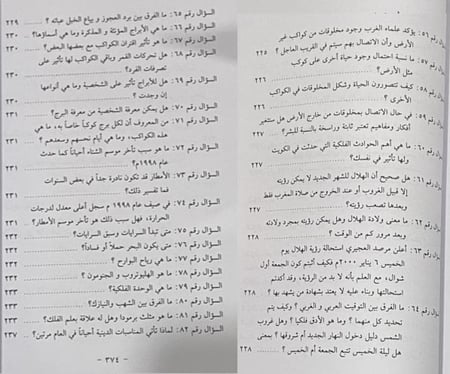 السؤال رقم ٥٦: يؤكد علماء الغرب وجود مخلوقات من كواكب غير
الأرض وأن الاتصال بهم سيتم في القريب العاجل ؟ ٢٢٥
السؤال رقم ٥٧: ما نسبة احتمال وجود حياة أخرى على كوكب
مثل الأرض؟ ٢٢٦
السؤال رقم ٥٨: كيف تتصورون الحياة وشكل المخلوقات في الكواكب
الأخرى ؟ ٢٢٦
السؤال رقم ٥٩: في حال الاتصال بمخلوقات من خارج الأرض هل ستتغير
أفكار ومفاهيم تعتبر ثابتة وراسخة بالنسبة للبشر؟ ٢٢٧
السؤال رقم ٦٠: ما هي أهم الحوادث الفلكية التي حدثت في الكويت
ولها تأثير في نفسك؟
السؤال رقم ٦١: هل صحيح أن الهلال للشهر الجديد لا يمكن رؤيته
إلا قبيل الغروب أو عند الخروج من صلاة المغرب فقط
وبعدها تصعب رؤيته؟ ٢٢٧
السؤال رقم ٦٢: ما معنى ولادة الهلال وهل يمكن رؤيته بمجرد ولادته
وبعد مرور كم من الوقت ؟ ٢٢٨
السؤال رقم ٦٣: أعلن مرصد العجيري استحالة رؤية الهلال يوم
الخميس ٦ يناير ٢٠٠٠م فكيف أثبتم كون الجمعة أول
شوال، مع العلم بأنه لا بد من الرؤية، وقد أكدتم
استحالتها وبناء عليه لا يعتد بشهادة من يشهد بها ؟ ٢٢٨
السؤال رقم ٦٤: ما الفرق بين التوقيت العربي والغربي ؟ وكيف يتم
تحديد كل منهما ؟ وما هو الأدق فلكيا ؟ وهل غروب
الشمس دليل دخول النهار الجديد أم شروقها ؟ بمعنى
هل ليلة الخميس تتبع الجمعة أم الخميس ؟ ٢٢٨
السؤال رقم ٦٥: ما الفرق بين برد العجوز و بياع الخبل عباته ؟ ٢٢٩
السؤال رقم ٦٦: ما هي الأبراج المؤنثة و المذكرة وما هي أسماؤها؟ ٢٣٠
السؤال رقم ٦٧: ما هو تأثير اقتران الكواكب مع بعضها البعض؟ ٢٣٠
السؤال رقم ٦٨: هل تحركات القمر وباقي الكواكب لها تأثير على
تصرفات الفرد؟ ٢٣٠
السؤال رقم ٦٩: هل للأبراج تأثير على الشخصية وما هي أنواعها
إن وجدت ؟ ٢٣٠
السؤال رقم ٧٠: هل يمكن معرفة الشخصية من معرفة البرج؟ ٢٣١
السؤال رقم ٧١: من المعروف أن لكل برج كوكباً خاصاً به، ما هي
هذه الكواكب، وما هي أيام نحسهم وسعدهم ؟ ٢٣١
السؤال رقم ٧٢: ما هو سبب تأخر موسم الشتاء أحياناً كما حدث
عام ١٩٩٨م؟ ٢٣١
السؤال رقم ٧٣: الأمطار قد تكون نادرة جداً في بعض السنوات
فما تفسير ذلك؟ ٢٣١
السؤال رقم ٧٤: في صيف عام ١٩٩٨ م سجل أعلى معدل لدرجات
الحرارة، فهل سبب ذلك هو تأخر موسم الأمطار؟ ٢٣١
السؤال رقم ٧٥: متى تبدأ السرايات وسبق السرايات؟ ٢٣٢
السؤال رقم ٧٦: متى يكون البحر حملاً أو فساداً؟ ٢٣٢
السؤال رقم ٧٧: ما هي رياح البوارح ؟ ٢٣٢
السؤال رقم ٧٨: ما هو الهليوتروب و الجنتومون ؟ ٢٣٢
السؤال رقم ٧٩: ما هي الوحدة الفلكية؟ ٢٣٣
السؤال رقم ٨٠: ما الفرق بين الشهب والنيازك؟ ٢٣٣
السؤال رقم ٨١: ما هو مثلث برمودا وهل له علاقة بعلم الفلك؟ ٢٣٣
السؤال رقم ٨٢: لماذا تأتي المناسبات الدينية أحياناً في العام مرتين؟ ٢٣٧
- ٣٧٤ -